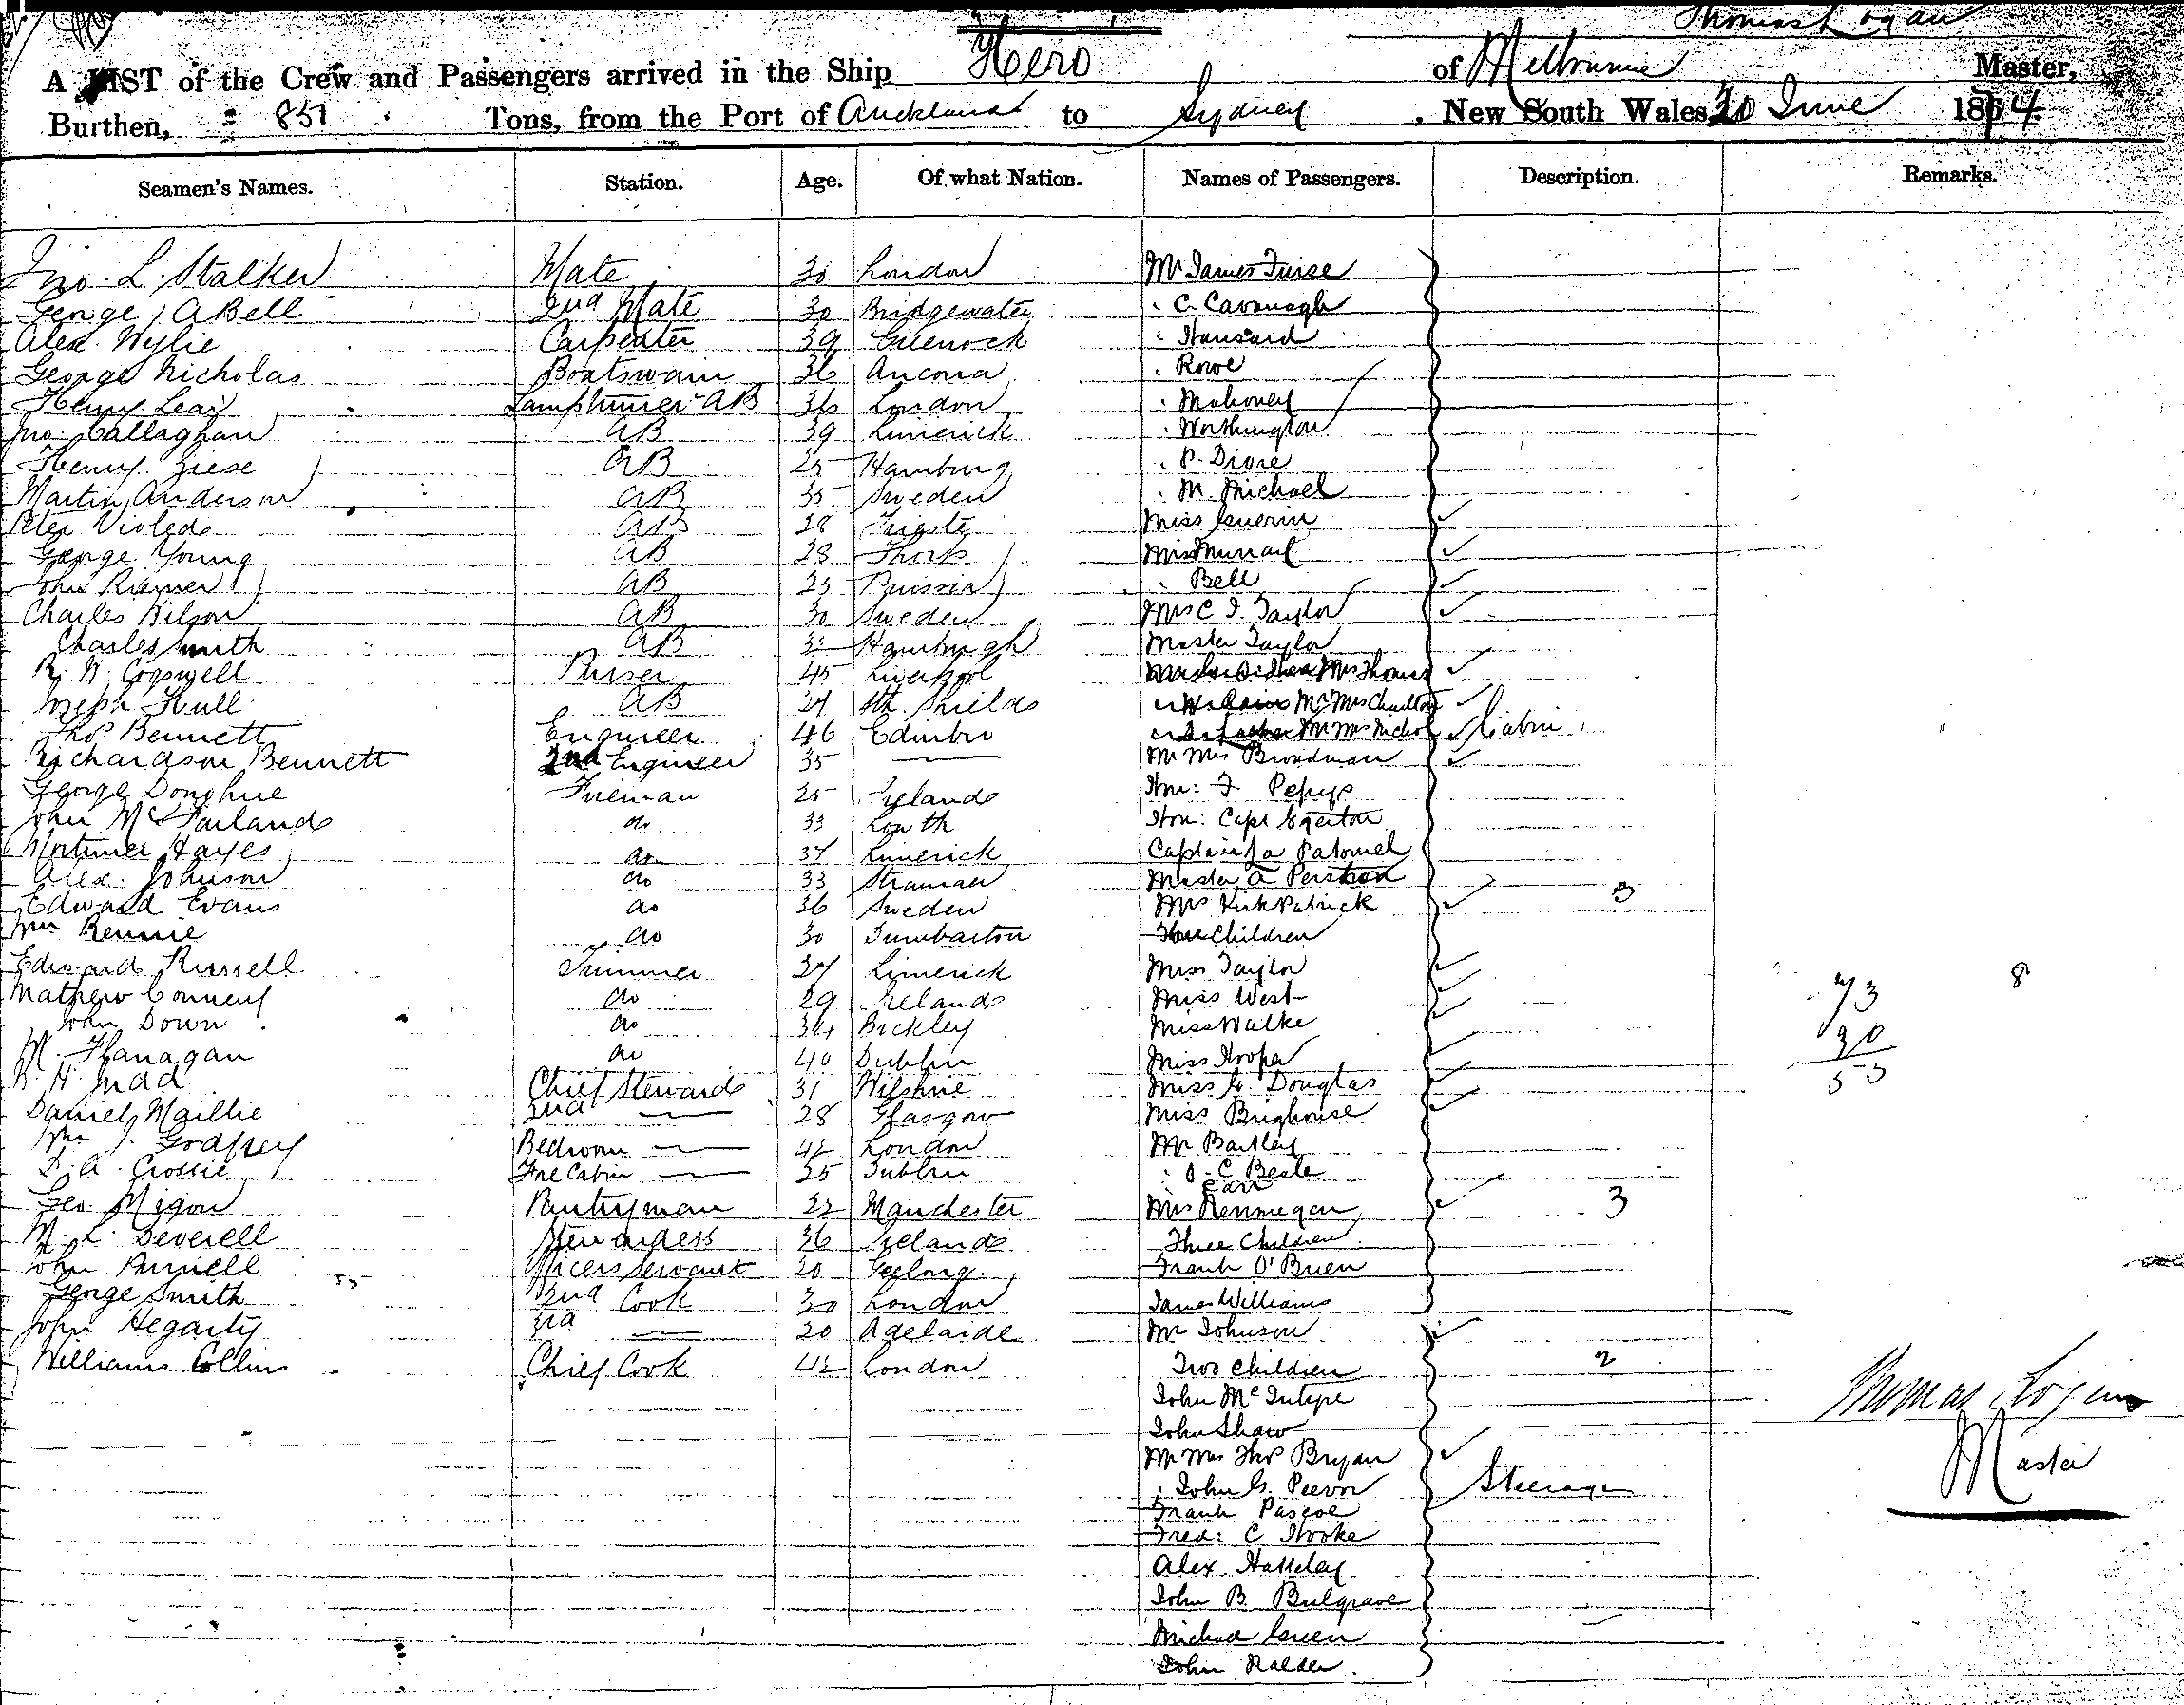 Thomas Logan
A LIST of the Crew and Passengers arrived in the Ship Hero of Melbourne Master,
Burthen, 857 Tons, from the Port of Auckland to Sydney, New South Wales 30 June 1874
Seamen's Names. Station. Age. Of what Nation. Names of Passengers. Description. Remarks.
Jno. L. Stalker Mate 30 London Mr James
George A Bell 2nd Mate 30 Bridgewater " C. Cavanagh
Alex Wylie Carpenter 39 Greenock " Hansard
George Nicholas Boatswain 36 Ancona " Rowe
Henry Lear Lamptrimer AB 36 London " Mahoney
Jno. Callaghan AB 39 Limerick " Worthington
Henry Ziese AB 25 Hamburg " P. Divre
Martin Anderson AB 35 Sweden " M. Michael
Peter AB 28 Miss Guerin
George Young AB 28 Miss Murray
John Riemer AB 25 Prussia " Bell
Charles Wilson AB 30 Sweden Mrs C. J. Taylor
Charles Smith AB Hamburgh Master Taylor
R. W. Cogswell Purser 45 Liverpool Mrs Thomas
Joseph Hull AB 27 Sth. Shields Mr Mrs Charlton
Thos. Bennett Engineer 46 Edinbro Mr Mrs Nichol Cabin
Richardson Bennett 2nd Engineer 35 — Mr Mrs Broadman
George Donohue Fireman 25 Ireland Hon: F. Pepys
John McFarland do 33 Louth Hon: Capt Egerton
Mortimer Hayes do 37 Limerick Captain
Alex. Johnson do 33 Master A
Edward Evans do 36 Sweden Mrs Kirkpatrick 3
Wm Rennie do 30 Dumbarton Three Children
Edward Russell Trimmer 27 Limerick Miss Taylor
Mathew Connery do 29 Ireland Miss West 73 8
John Down do 34 Bickley Miss Walke
M. Flanagan do 40 Dublin Miss Hooper 30
W. H. Judd Chief Steward 31 Wilshire Miss G. Douglas 53
Daniel Maillie 2nd — 28 Glasgow Miss Brighouse
Wm J. Godfrey Bedroom — 42 London Mr Bartley
D. A. Crossie Fre Cabin — 25 Dublin " O. C. Beale
" Carr
Geo. Migon Pantryman 22 Manchester Mrs Rennegan 3
M. L. Deverell Stewardess 36 Ireland Three Children
John Purnell Officers Servant 20 Geelong Frank O'Brien
George Smith 2nd Cook 30 London James Williams
John Hegarty 3rd — 20 Adelaide Mr Johnson
Williams Collins Chief Cook 42 London Two Children 2
John McIntyre
Thomas Logan
John Shaw
Mr Mrs Thos Bryan Master
" John G. Peevor Steerage
Frank Pascoe
Fred: C Hooke
Alex Hatteley
John B. Bulgrave
Michael Green
John Ralder